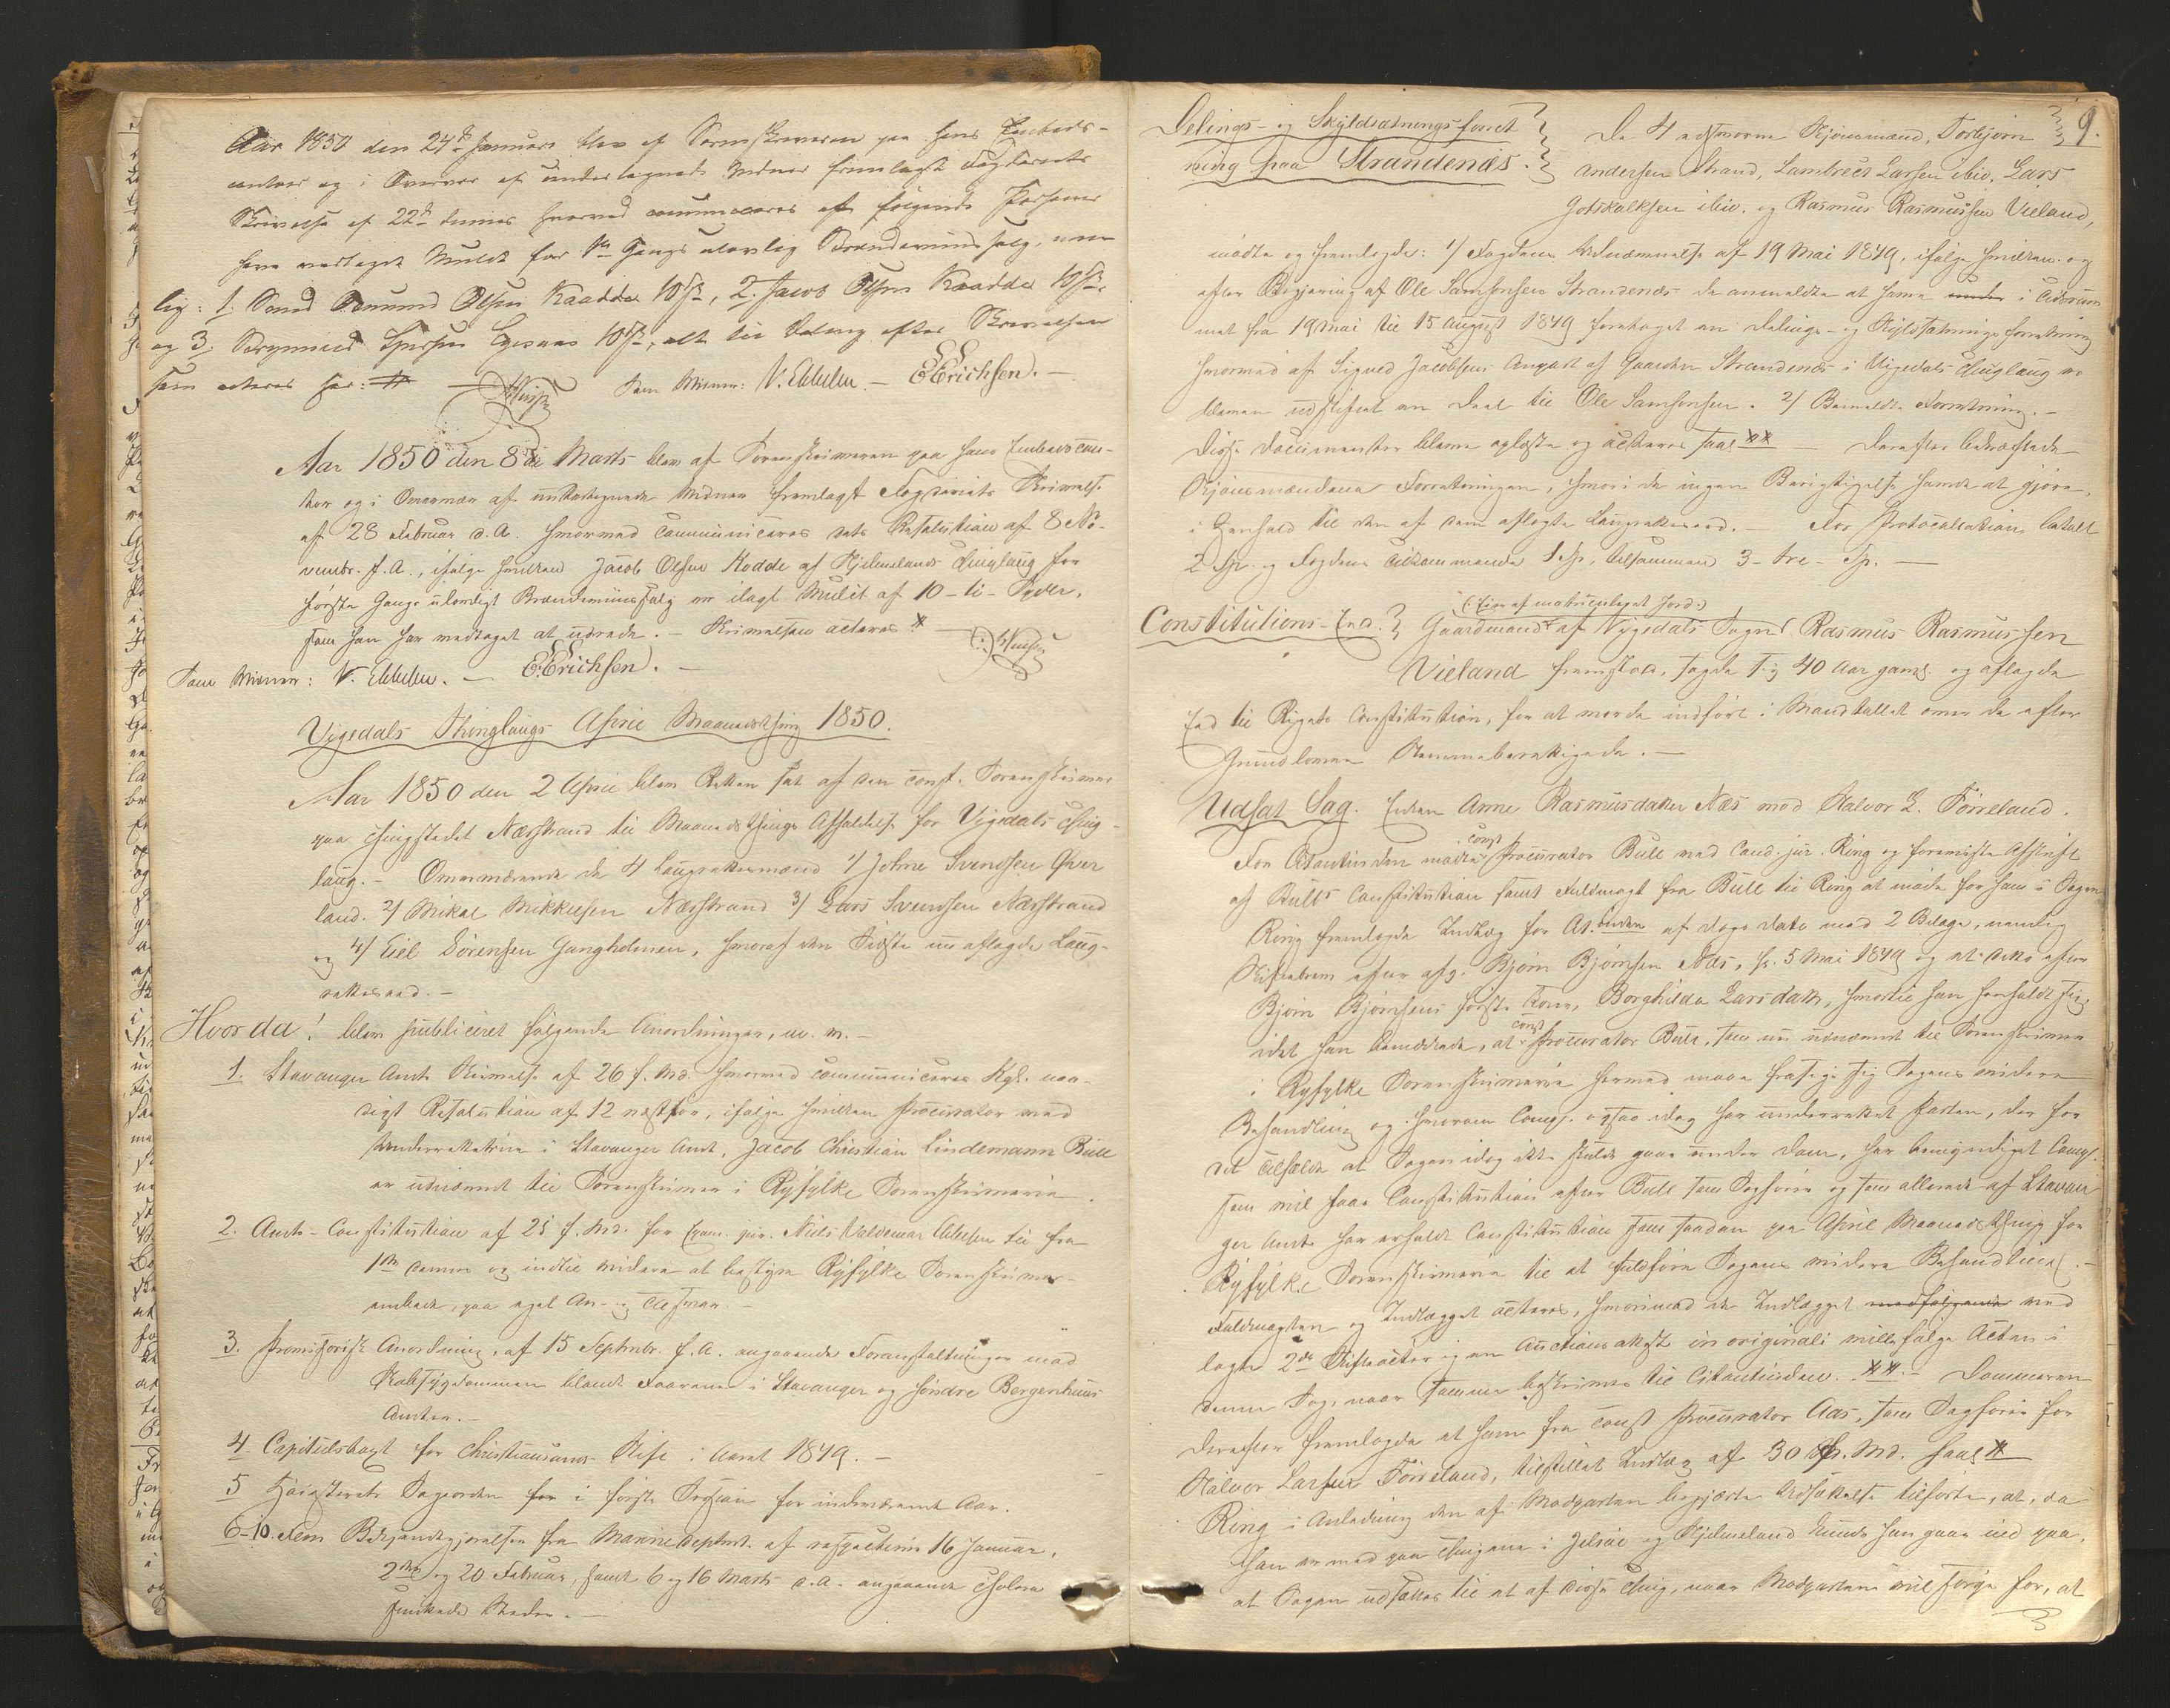 Aar 1850 den 24de Januari blev af Sorenskriveren paa hans Embeds-
contoir og i Overvær af undertegnede Vidner fremlagt Fogderiets
Skrivelse af 22de dennes hvorved communiceres at følgende Personer
have vedtaget Mulct for 1ste Gangs ulovlig Brændeviinssalg, nem-
lig: 1. Smed Omund Olsen Kaadda 10 Sp, 2. Jacob Olsen Kaadda 10 Sp,
og 3. Brynild 10 Sp, alt til efter Skrivelsen
som acteres her:
Som Vidner: V. Ebbesen. — E Erichsen. —
Aar 1850 den 8de Marts blev af Sorenskriveren paa hans Embedscon-
tor og i Overvær af undertegnede Vidner fremlagt Fogderiets Skrivelse
af 28 Februar d.A. hvorved communiceres dets Resolution af 8 No-
vembr. f.A., ifølge hvilken Jacob Olsen Kodde af Hjelmelands Thinglaug for
første Gangs ulovligt Brændeviinssalg er ilagt Mulct af 10 - ti - Spdlr,
som han har vedtaget at udrede. — Skrivelsen acteres
Som Vidner: V. Ebbesen. — E. Erichsen. —
Vigedals Thinglaugs April Maanedsthing 1850.
Aar 1850 den 2 April blev Retten sat af den const. Sorenskriver
paa Thingstedet Nærstrand til Maanedsthings Afholdelse for Vigedals Thing-
laug. — Overværende de 4 Laugrettesmænd 1/ Johne Svendsen Øver
land. 2/ Mikal Mikkelsen Nærstrand 3/ Lars Svendsen Nærstrand
og 4/ Eiel Sørensen Gangholmen, hvoraf den Sidste nu aflagde Laug-
retteseed. —
Hvorda! blev publiceret følgende Anordninger, m. m. —
1. Stavanger Amts Skrivelse af 26 f. Md. hvorved communiceres Kgl. naa-
digst Resolution af 12 næstfør, ifølge hvilken Procurator ved
Underretterne i Stavanger Amt, Jacob Christian Lindemann Bull
er udnævnt til Sorenskriver i Ryfylke Sorenskriveri.
2. Amts-Constitution af 25 f. Md. for Exam. jur. Niels Valdemar Ebbesen til fra
1ste dennes og indtil videre at bestyre Ryfylke Sorenskriver-
embede, paa eget An- og Tilsvar. —
3. Provisorisk Anordning, af 15 Septmbr. f.A. angaaende Foranstaltninger mod
Skabsygdommen blandt Faarene i Stavanger og søndre Bergenhuus
Amter. —
4. Capitelstaxt for Christiansands Stift i Aaret 1849. —
5 Høiesterets Sagsorden for i første Session for indeværende Aar.
6-10. Fem Bekjendtgjørelser fra Marinedeptmt. af respective 16 Januar,
2den og 20 Februar, samt 6 og 16 Marts d.A. angaaende Cholera
smittede Steder. —
9.
Delings- og Skyldsætningsforret
ning paa Strandenæs.
De 4 udnævnte Skjønsmænd, Torbjørn
Andersen Strand, Lambrect Larsen ibid. Lars
Gotskalksen ibid. og Rasmus Rasmussen Vieland,
mødte og fremlagde: 1/ Fogdens Udnævnelse af 19 Mai 1849, ifølge hvilken og
efter Begjæring af Ole Samsonsen Strandenæs de anmeldte at have under i Tidsrum
met fra 19 Mai til 15 August 1849 foretaget en Delings- og Skyldsætningsforretning
hvorved af Sigved Jacobsens Anpart af Gaarden Strandenæs i Vigedals Thinglaug var
bleven udskiftet en Deel til Ole Samsonsen. 2/ Bemeldte Forretning. —
Disse Documenter bleve oplæste og acteres saal. — Derefter bekræftede
Skjønsmændene Forretningen, hvori de ingen Berigtigelse havde at gjøre,
i Henhold til den af dem aflagte Laugretteseed. — For Protocollation betalt
2 Sp. og Fogdens Tilkommende 1 Sp, tilsammen 3 - tre - Sp. —
Constitutions-Eed. (: Eier af matriculeret Jord :)
Gaardmand af Vigedals Sogn Rasmus Rasmussen
Vieland fremstod, sagde sig 40 Aar gaml. og aflagde
Eed til Rigets Constitution, for at vorde indført i Mandtallet over de efter
Grundloven Stemmeberettigede. —
Udsat Sag. Enken Anne Rasmusdatter Næs mod Halvor L. Førreland.
For Citantinden mødte const Procurator Bull ved Cand. jur. Ring og foreviiste Afskrift
af Bulls Constitution samt Fuldmagt fra Bull til Ring at møde for ham i Sagen
Ring fremlagde Indlæg for Ct.inden af Dags Dato med 2 Bilage, nemlig
Skiftebrev efter afg. Bjørn Bjørnsen Næs, sl. 5 Mai 1849 og et ditto efter
Bjørn Bjørnsens første Kone, Borghilda Larsdatt, hvortil han henholdt sig
idet han bemærkede, at const Procurator Bull, som nu udnævnt til Sorenskriver
i Ryfylke Sorenskriveri herved maa frasige sig Sagens videre
Behandling og hvorom Comp. ogsaa idag har underrettet Parten, der for
det Tilfælde at Sagen idag ikke skulde gaae under Dom, har bemyndiget Comp.
som vil faae Constitution efter Bull som Sagfører og som allerede af Stavan
ger Amt har erholdt Constitution som saadan paa April Maanedsthing for
Ryfylke Sorenskriveri til at fuldføre Sagens videre Behandling. —
Fuldmagten og Indlægget acteres, hvorimod de Indlægget medfølgende ved
lagte 2de Skifteacter og en Auctionsakt in originali ville følge Acten i
denne Sag, naar samme beskrives til Citantinden. — Dommeren
derefter fremlagde et ham fra const Procurator Aas, som Sagfører for
Halvor Larsen Førreland, tilstillet Indlæg af 30 f. Md. saal.
Ring i Anledning den af Modparten begjærte Udsættelse tilførte, at, da
han er med paa Thingene i Jelsøe og Hjelmeland kunde han gaae ind paa,
at Sagen udsættes til et af disse Thing, naar Modparten vil sørge for, at